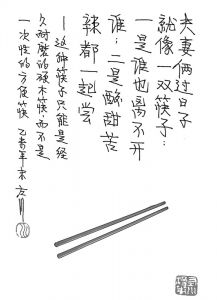 夫妻俩过日子
就像一双筷子:
一是谁也离不开
谁;二是酸甜苦
辣都一起尝
—这种筷子只能是经
久耐磨的硬木筷,而不是
一次性的方便筷